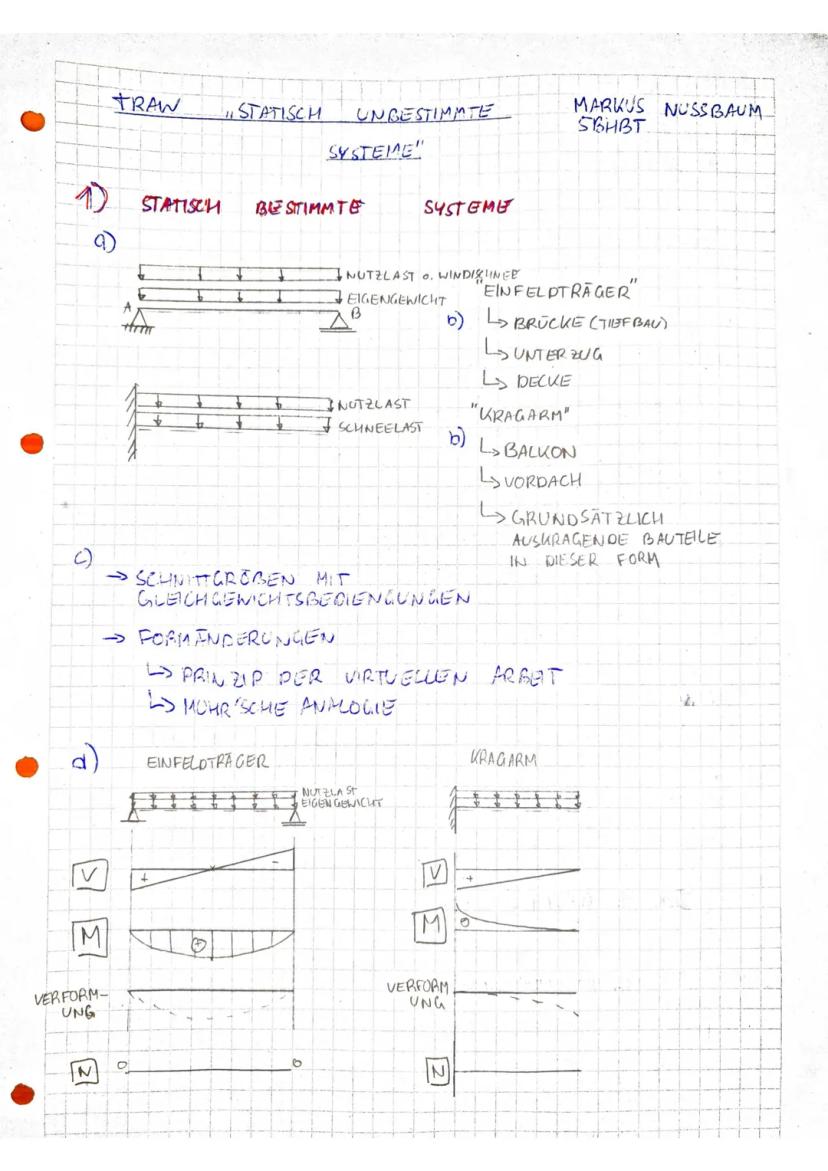 TRAW „STATISCH UNBESTIMMTE
SYSTEME"
MARKUS NUSSBAUM
5BHBT
1) STATISCH BESTIMMTE SYSTEME
a)
NUTZLAST o. WIND/SCHNEE
EIGENGEWICHT
A
B
"EINFELDTRÄGER"
b) ↳ BRÜCKE (TIEFBAU)
↳ UNTERZUG
↳ DECKE
NUTZLAST
SCHNEELAST
"KRAGARM"
b) ↳ BALKON
↳ VORDACH
↳ GRUNDSÄTZLICH
AUSKRAGENDE BAUTEILE
IN DIESER FORM
c)
→ SCHNITTGRÖßEN MIT
GLEICHGEWICHTSBEDIENGUNGEN
→ FORMÄNDERUNGEN
↳ PRINZIP DER VIRTUELLEN ARBEIT
↳ MOHR'SCHE ANALOGIE
d) EINFELDTRÄGER
NUTZLAST
EIGENGEWICHT
V
+
-
M
+
VERFORM-
UNG
N
0
0
KRAGARM
V
+
M
VERFORM
UNG
N